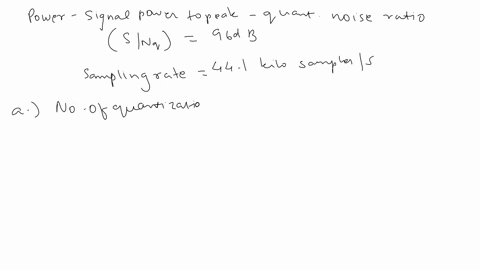 Power - Signal power to peak - quant. noise ratio
(S/Nq) = 96dB
Sampling rate = 44.1 kilo samples/s
a.) No. of quantizatio